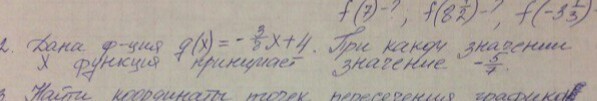 f(7)-?, f(8 1/2)-?, f(-3 1/3)-?
2. Дана ф-ция g(x) = - 3/5 x + 4. При каком значении
x функция принимает значение - 5/7.
3. Найти координаты точек пересечения графиков